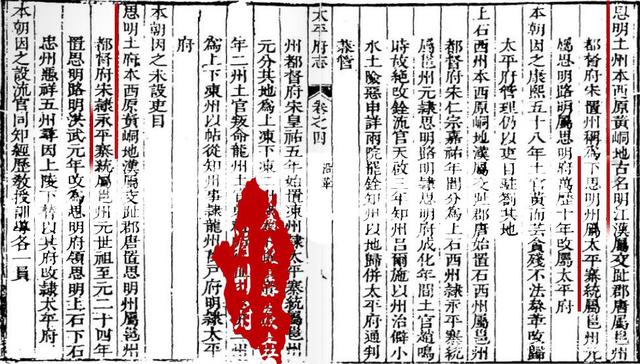 思明土州本西原黃峒地古名明江漢屬交趾郡唐屬邕州
都督府宋置州稱為下思明州屬太平寨統屬邕州元
屬思明路明屬思明府萬歷十年改屬太平府
本朝因之康熙五十八年土官黃而芙貪殘不法叅革改歸
太平府管理仍以吏目駐劄其地
上石西州本西原黃峒地漢屬交趾郡唐始置石西州屬邕州
都督府宋仁宗嘉祐年間分為上石西州隷永平寨統
屬邕州元隷思明路明隷思明府成化年間土官趙鳴
時故絕改銓流官天啟三年知州呂爾施以州治僻小
水土險惡申詳兩院罷銓知州以地歸併太平府通判
兼管
太平府志 卷之四 沿革
州都督府宋皇祐五年始置凍州隷太平寨統屬邕州
元分其地為上凍下凍
年二州土官叛命龍州土官
為上下凍州以帖從知州事隷龍州萬戶府明隷太平
府
本朝因之未設吏目
思明土府本西原黃峒地漢屬交趾郡唐置思明州屬邕州
都督府宋隷永平寨統屬邕州元世祖至元二十四年
置思明路明洪武元年改為思明府領思明上石下石
忠州憑祥五州尋因上陵下替以其府改隷太平府
本朝因之設流官同知經歷教授訓導各一員